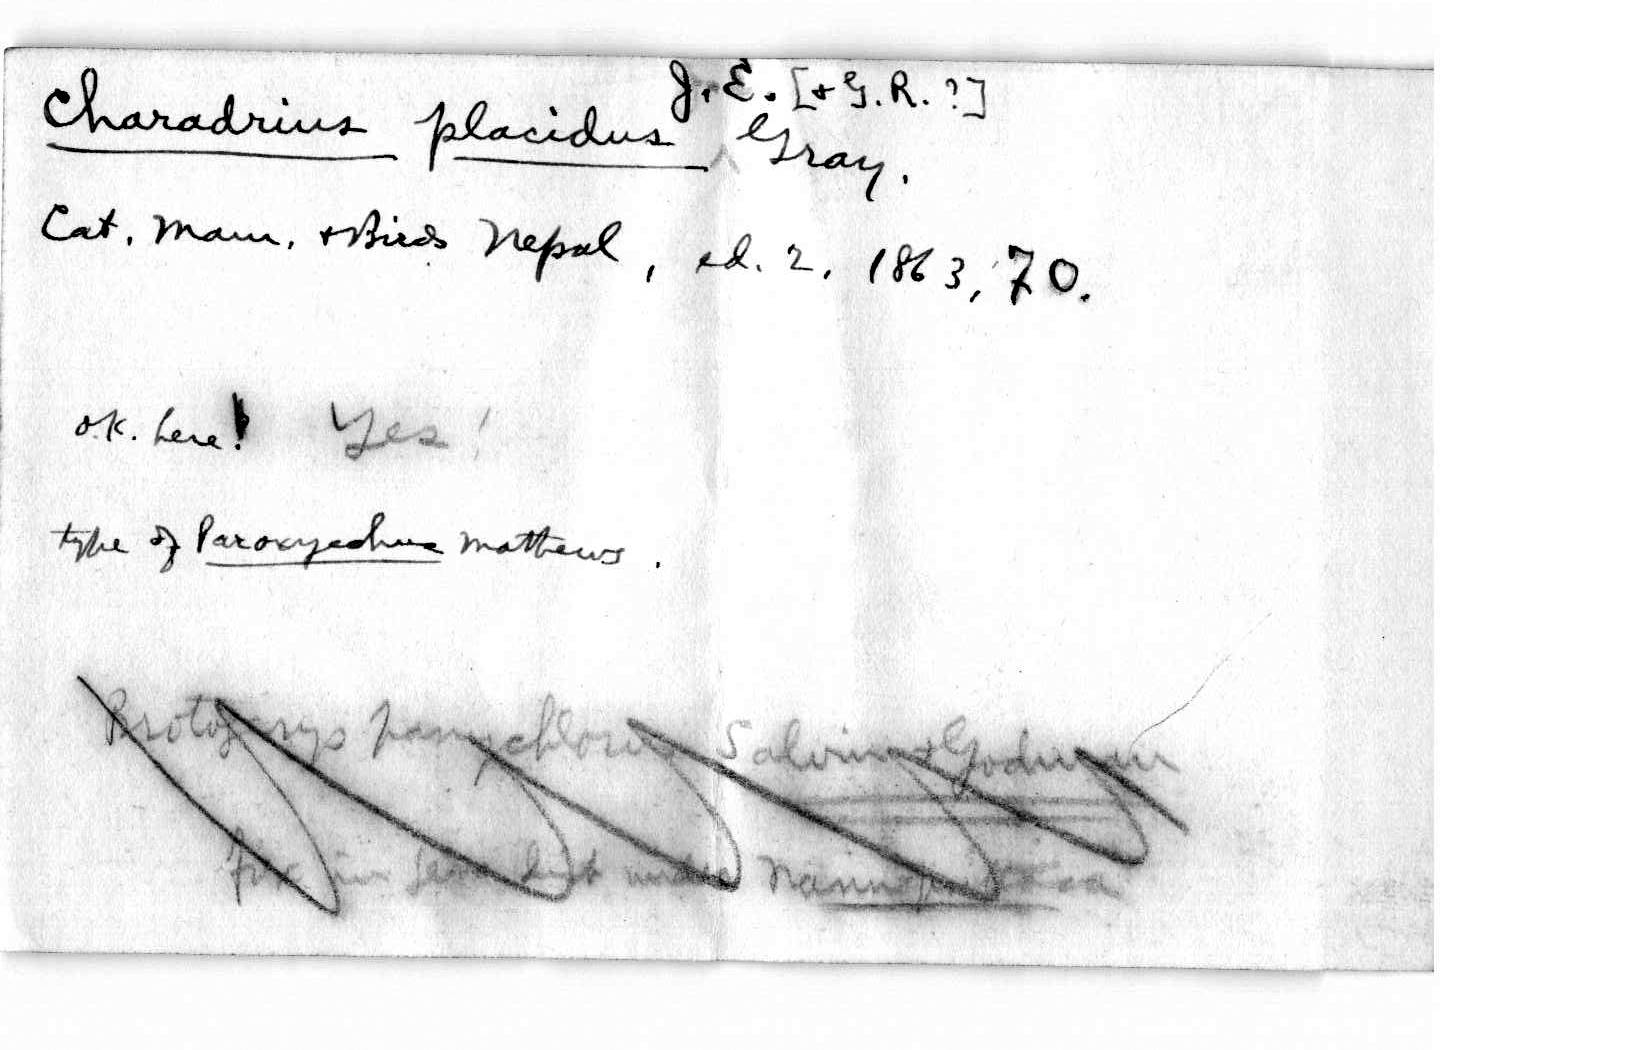 Charadrius placidus J. E. [+ G. R. ?] Gray.
Cat. Mam. + Birds Nepal, ed. 2, 1863, 70.
ok. here! Yes!
type of Paroxyechus Mathews.
Protogerys panychlorus Salvin + Godman
for in under